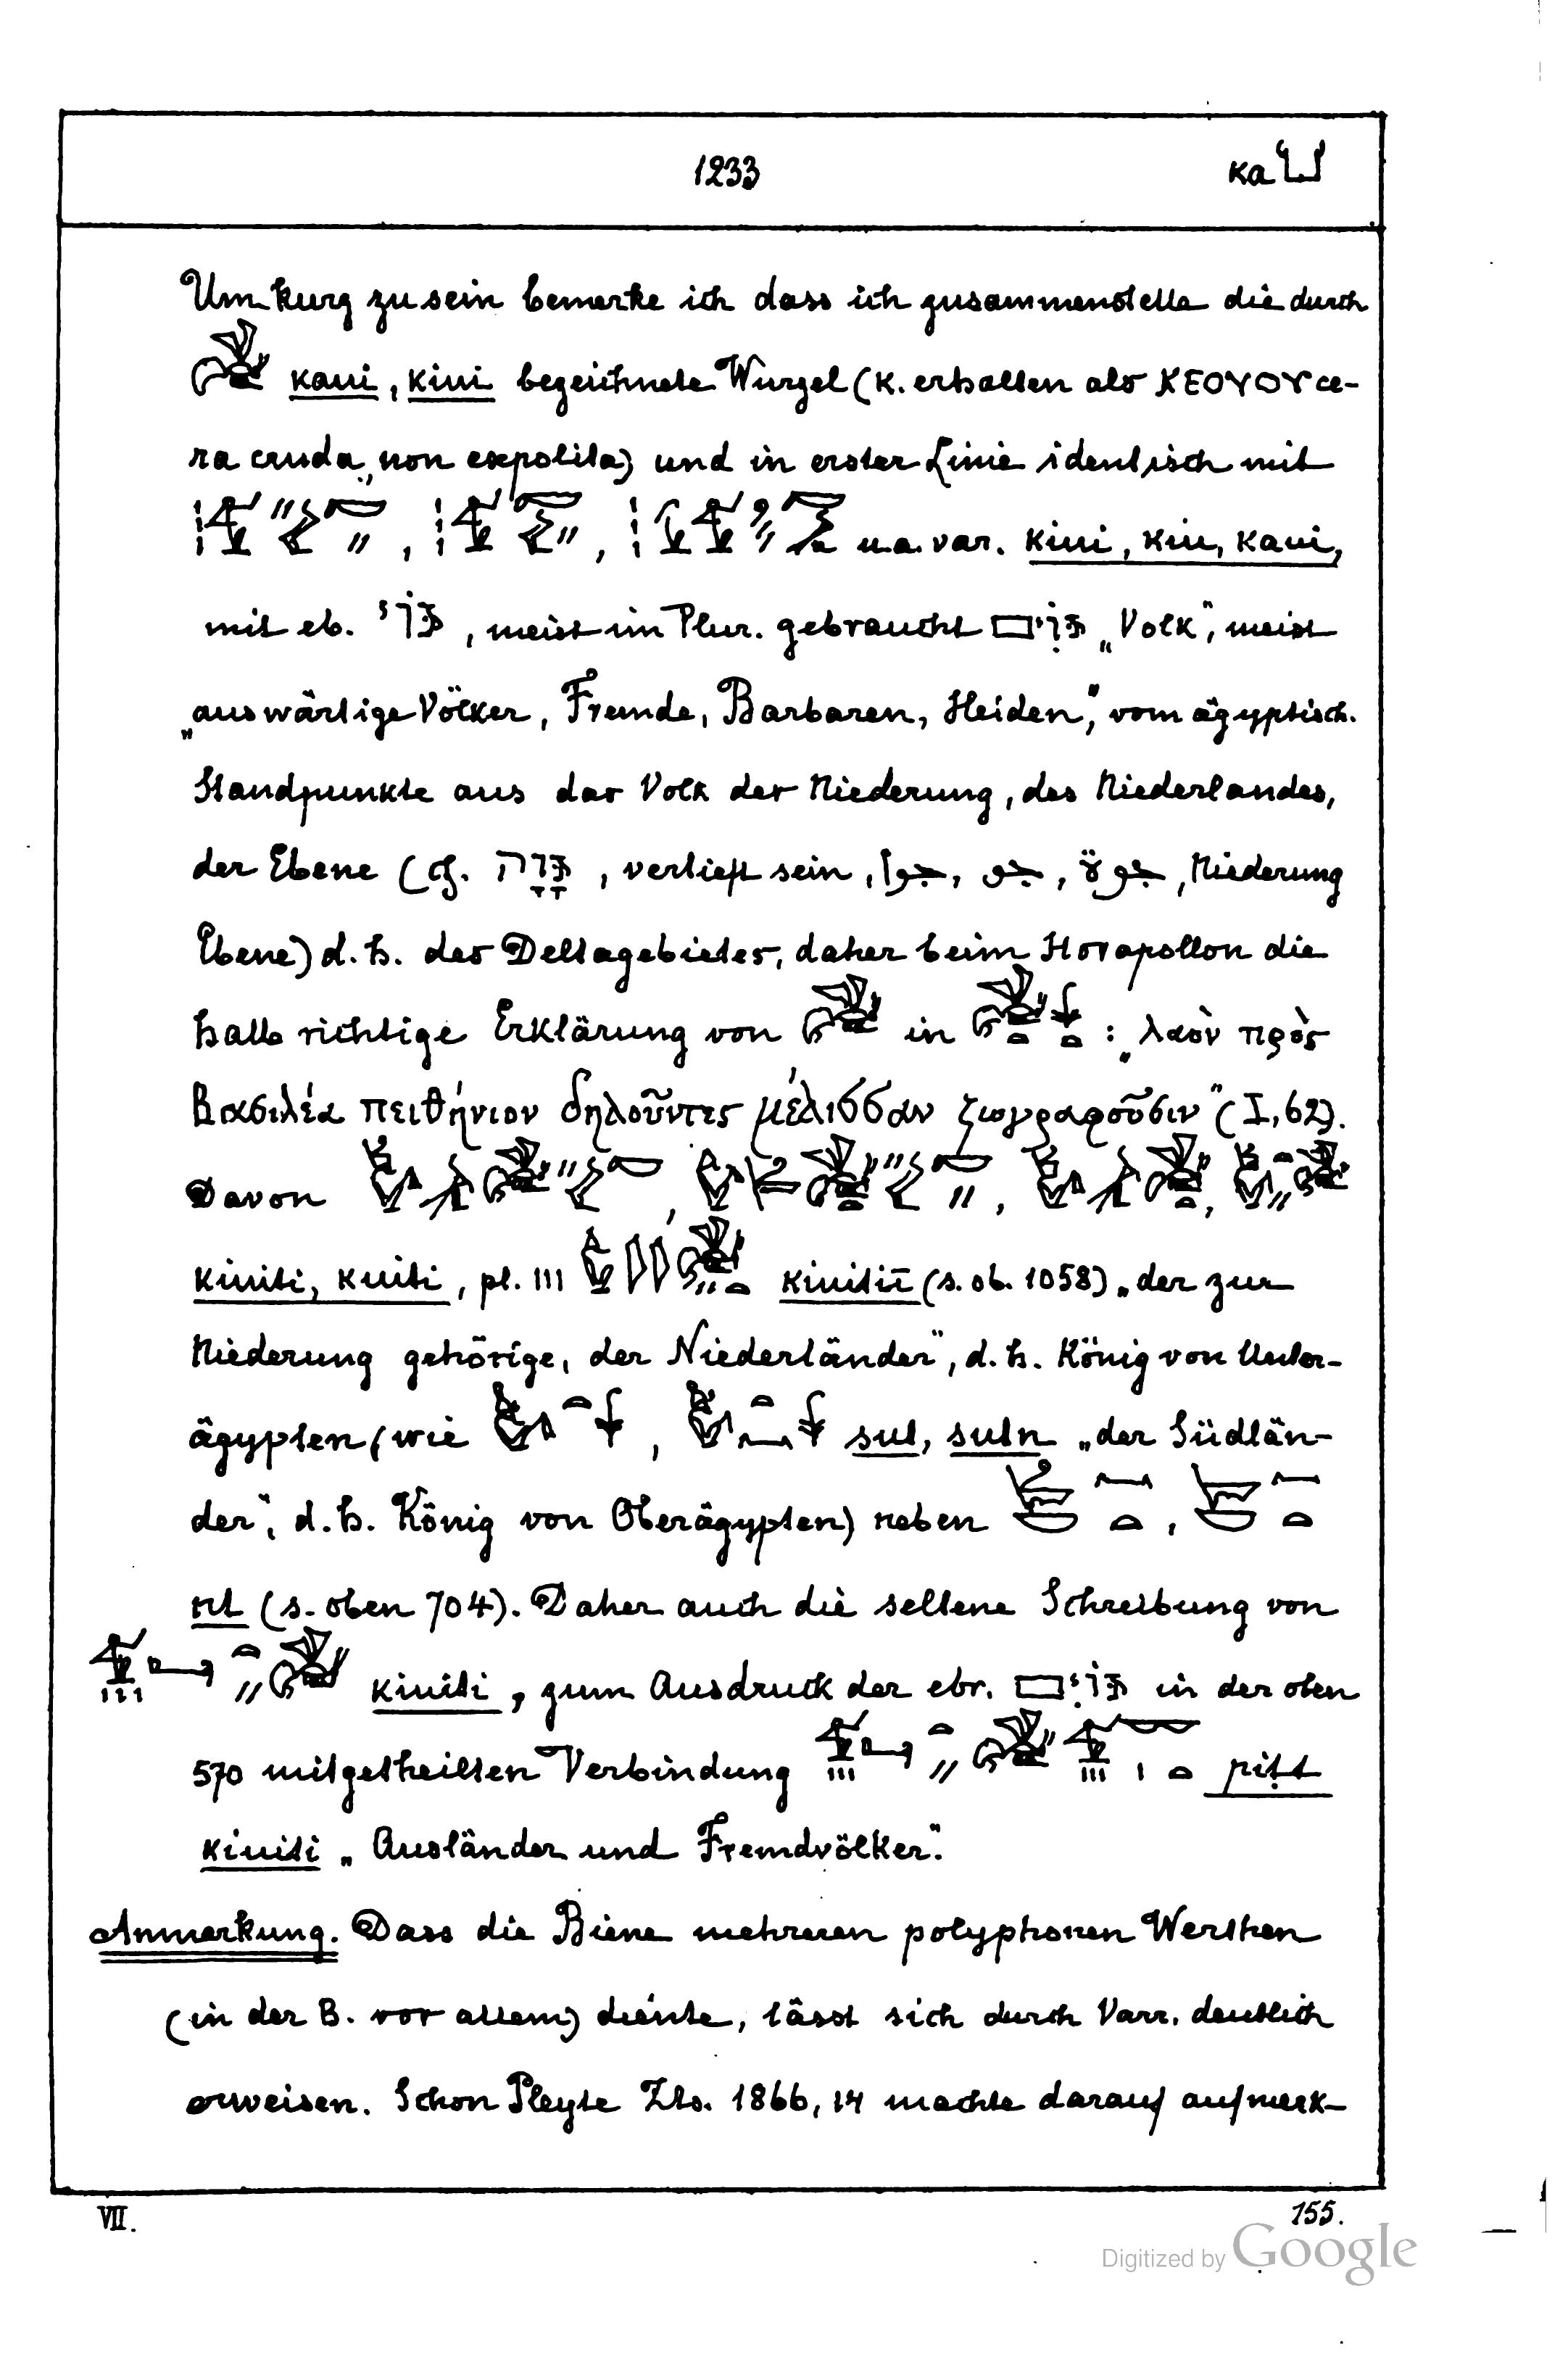 1233
ka 𓂓
Um kurz zu sein bemerke ich dass ich zusammenstelle die durch
𓆤 kaui, kiui bezeichnete Wurzel (K. erhalten als ⲔⲈⲞⲨⲞⲨ ce-
ra cruda, non expolita) und in erster Linie identisch mit
, , u.a. var. kiui, kiu, kaui,
mit eb. גּוֹי, meist im Plur. gebraucht גּוֹיִם „Volk", meist
„auswärtige Völker, Fremde, Barbaren, Heiden", vom ägyptisch.
Standpunkte aus das Volk der Niederung, des Niederlandes,
der Ebene (cf. גָּוָה, vertieft sein, جوا, جو, جوة, Niederung
Ebene) d.h. des Deltagebietes, daher beim Horapollon die
halb richtige Erklärung von 𓆤 in 𓇓𓏏𓆤𓏏 : „λαὸν πρὸς
βασιλέα πειθήνιον δηλοῦντες μέλισσαν ζωγραφοῦσιν" (I, 62).
Davon , , ,
kiuiti, kuiti, pl. III kiuitiī (s. ob. 1058) „der zur
Niederung gehörige, der Niederländer", d.h. König von Unter-
ägypten (wie , sut, sutn „der Südlän-
der", d.h. König von Oberägypten) neben ,
nt (s. oben 704). Daher auch die seltene Schreibung von
kiuiti, zum Ausdruck der ebr. גּוֹיִם in der oben
570 mitgetheilten Verbindung piṭt
kiuiti „Ausländer und Fremdvölker".
Anmerkung. Dass die Biene mehreren polyphonen Werthen
(in der B. vor allem) diente, lässt sich durch Varr. deutlich
erweisen. Schon Pleyte Zts. 1866, 14 machte darauf aufmerk-
VII.
155.
Digitized by Google